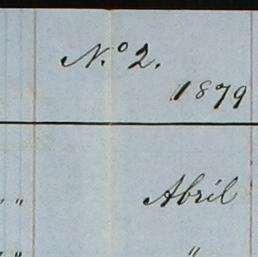 N.º 2.
1879
" Abril
" "